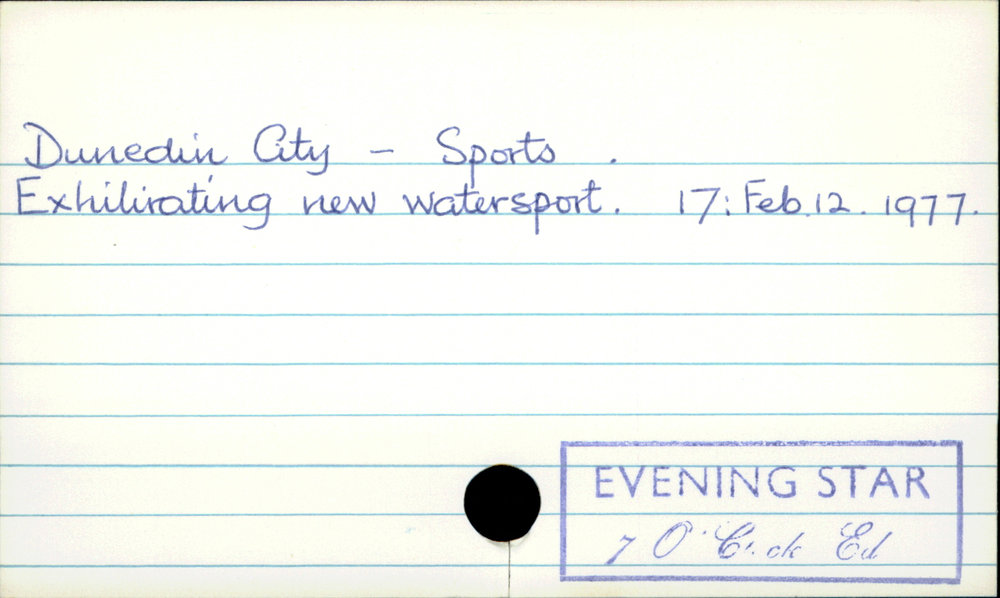 Dunedin City - Sports .
Exhilirating new watersport. 17: Feb.12. 1977.
EVENING STAR
7 O'Cl.ck Ed